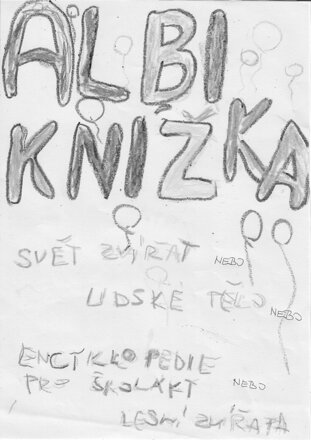 ALBI
KNIŽKA
SVĚT ZVÍŘAT
NEBO
LIDSKÉ TĚLO
NEBO
ENCIKLOPEDIE
PRO ŠKOLÁKY
NEBO
LESNÍ ZVÍŘATA